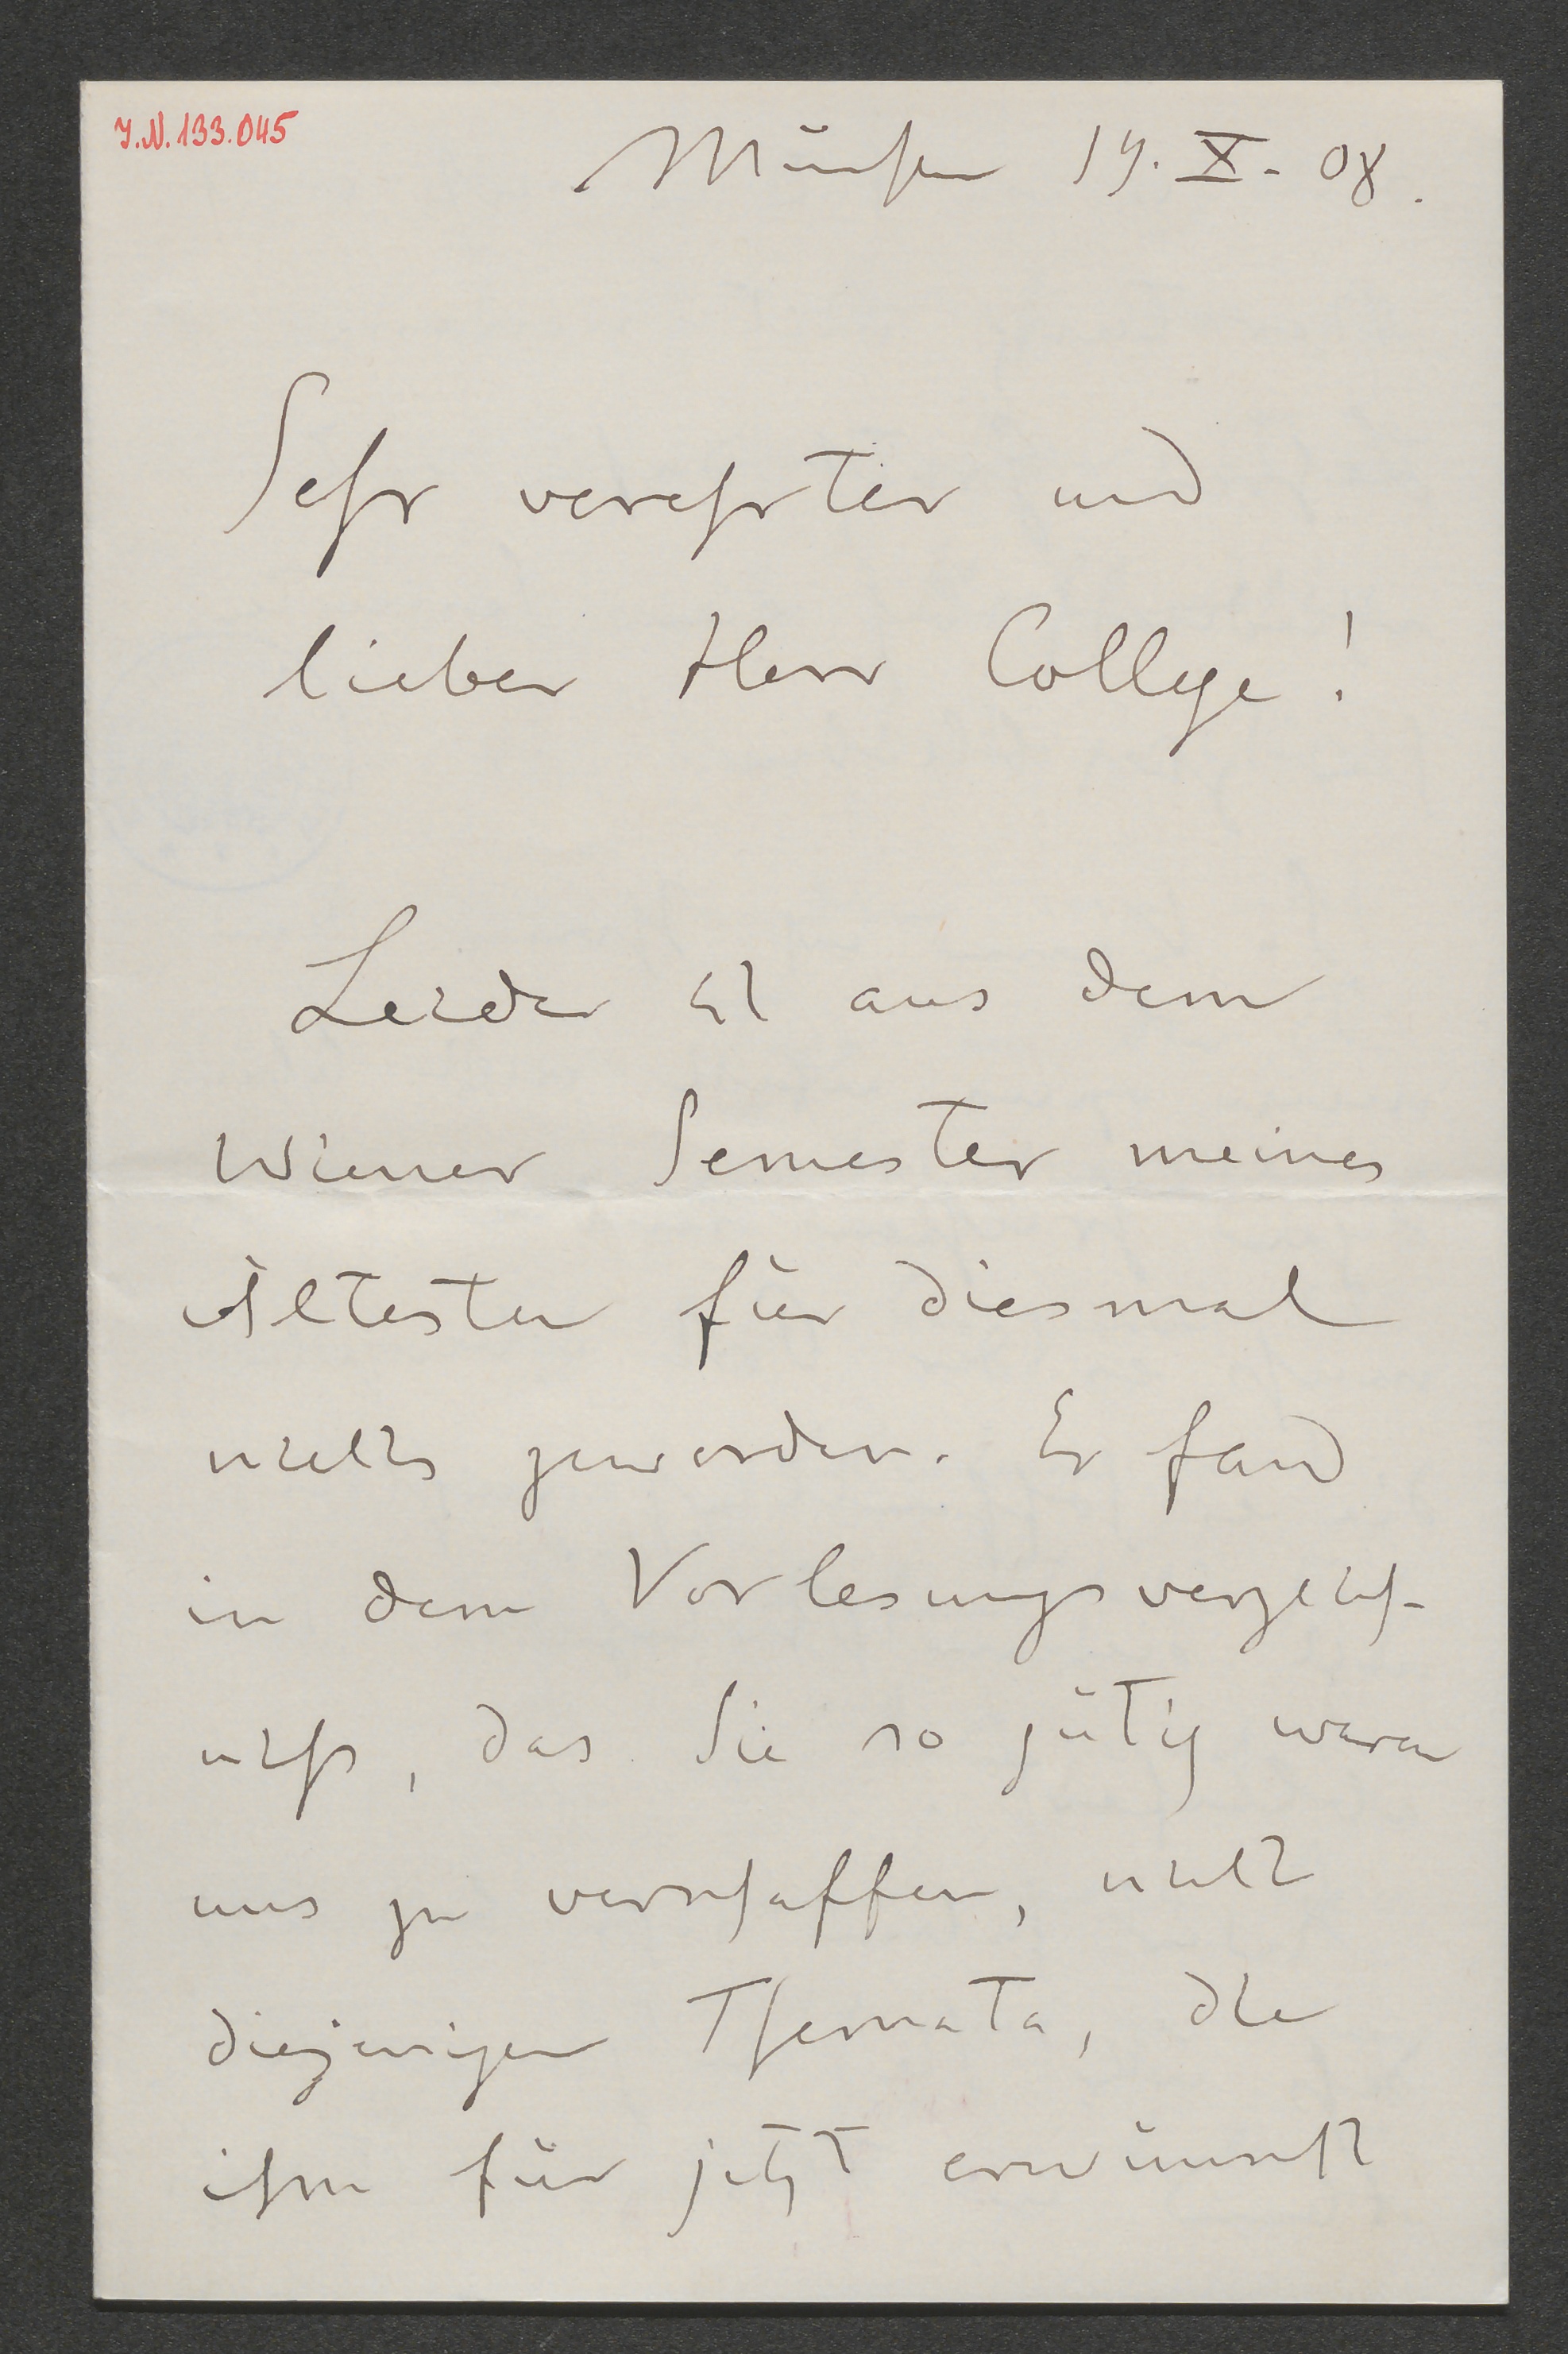 J.N. 133.045
München 19. X. 08.
Sehr verehrter und
lieber Herr College!
Leider ist aus dem
Wiener Semester meines
Ältesten für diesmal
nichts geworden. Er fand
in dem Vorlesungsverzeich-
niss, das Sie so gütig waren
uns zu verschaffen, nicht
diejenigen Themata, die
ihm für jetzt erwünscht